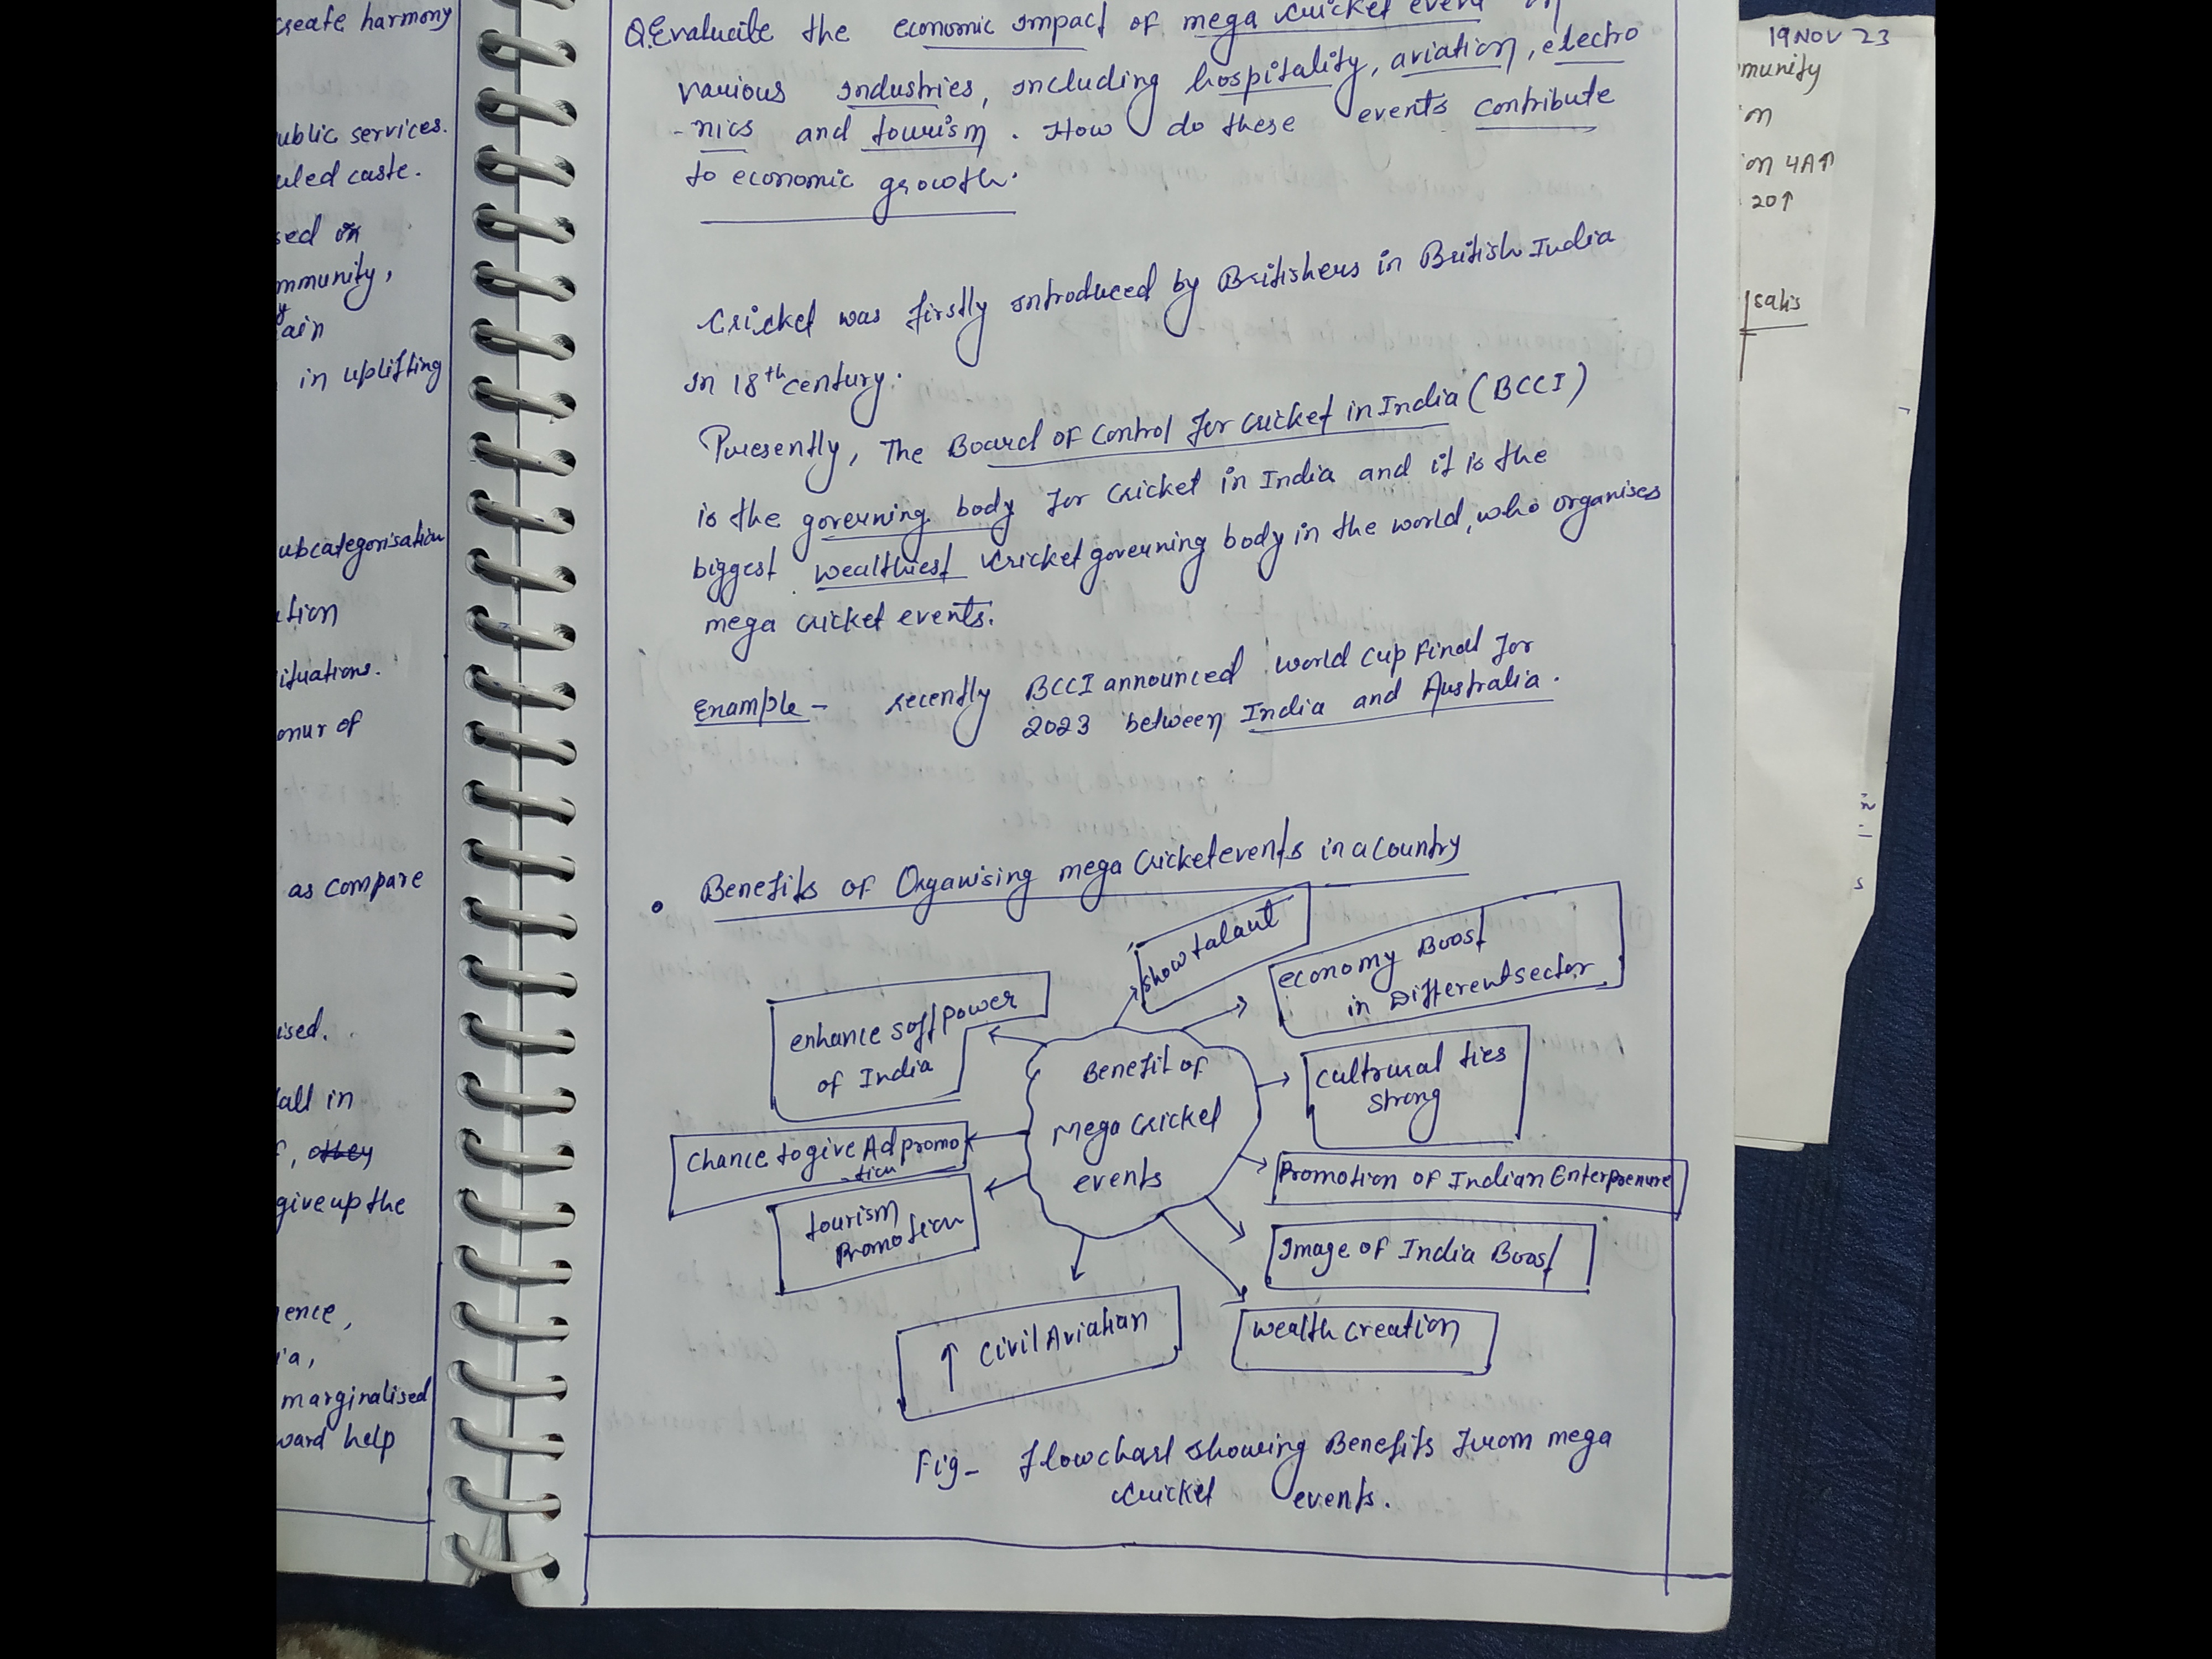 create harmony
public services.
uled caste.
sed on
mmunity,
ain
in uplifting
ubcategorisation
tion
ituations.
onur of
as compare
ised.
all in
give up the
ience,
ia,
marginalised
ward help
Q. Evaluate the economic impact of mega cricket event
various industries, including hospitality, aviation, electro
-nics and tourism. How do these events contribute
to economic growth.
Cricket was firstly introduced by Britishers in British India
in 18th century.
Presently, The Board of Control for cricket in India (BCCI)
is the governing body for cricket in India and it is the
biggest wealthiest cricket governing body in the world, who organises
mega cricket events.
Example - recently BCCI announced world cup final for
2023 between India and Australia.
• Benefits of Organising mega cricket events in a country
show talant
economy Boost
in Different sector
enhance soft power
of India
Benefit of
Mega Cricket
events
cultrural ties
strong
Chance to give Ad promo
-tion
Promotion of Indian Enterprenure
tourism
Promotion
Image of India Boost
↑ Civil Aviation
wealth Creation
Fig- flowchart showing Benefits from mega
cricket events.
19 NOV 23
munity
on
on 4A↑
20↑